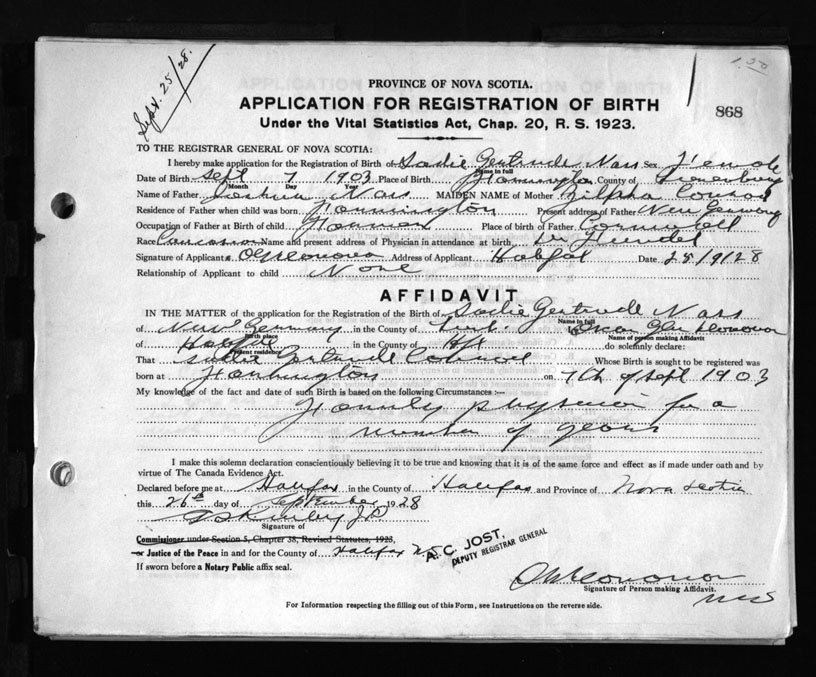 Sept. 25/28.
1.00
PROVINCE OF NOVA SCOTIA.
APPLICATION FOR REGISTRATION OF BIRTH
868
Under the Vital Statistics Act, Chap. 20, R. S. 1923.
TO THE REGISTRAR GENERAL OF NOVA SCOTIA:
I hereby make application for the Registration of Birth of Sadie Gertrude Nass Sex Female
Name in full
Date of Birth Sept 7 1903 Place of Birth County of Lunenburg
Month Day Year
Name of Father Joshua Nass MAIDEN NAME of Mother Zilpha
Residence of Father when child was born Present address of Father New Germany
Occupation of Father at Birth of Child Farmer Place of birth of Father
Race Name and present address of Physician in attendance at birth, Dr
Signature of Applicant Address of Applicant Halifax Date 25/9/28
Relationship of Applicant to child None
AFFIDAVIT
IN THE MATTER of the application for the Registration of the Birth of Sadie Gertrude Nass
Name in full
of New Germany in the County of Lun. Oscar Glen
Birth place Name of person making Affidavit
of Halifax in the County of Hfx do solemnly declare:
Present residence
That Gertrude Whose Birth is sought to be registered was
born at on 7th of Sept 1903
My knowledge of the fact and date of such Birth is based on the following Circumstances :--
Family physician for a
number of years
I make this solemn declaration conscientiously believing it to be true and knowing that it is of the same force and effect as if made under oath and by
virtue of The Canada Evidence Act.
Declared before me at Halifax in the County of Halifax and Province of Nova Scotia
this 26th day of September 1928
J.P.
Signature of
Commissioner under Section 5, Chapter 38, Revised Statutes, 1923,
or Justice of the Peace in and for the County of Halifax N.S.
A. C. JOST,
DEPUTY REGISTRAR GENERAL
If sworn before a Notary Public affix seal.
Signature of Person making Affidavit.
For Information respecting the filling out of this Form, see Instructions on the reverse side.